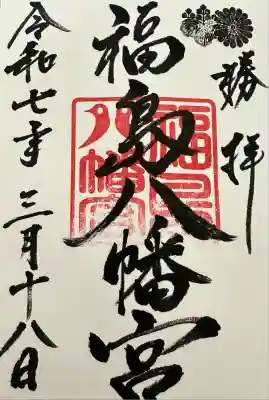 勝拝
福島八幡宮
令和七年 三月十八日
福島
八幡宮